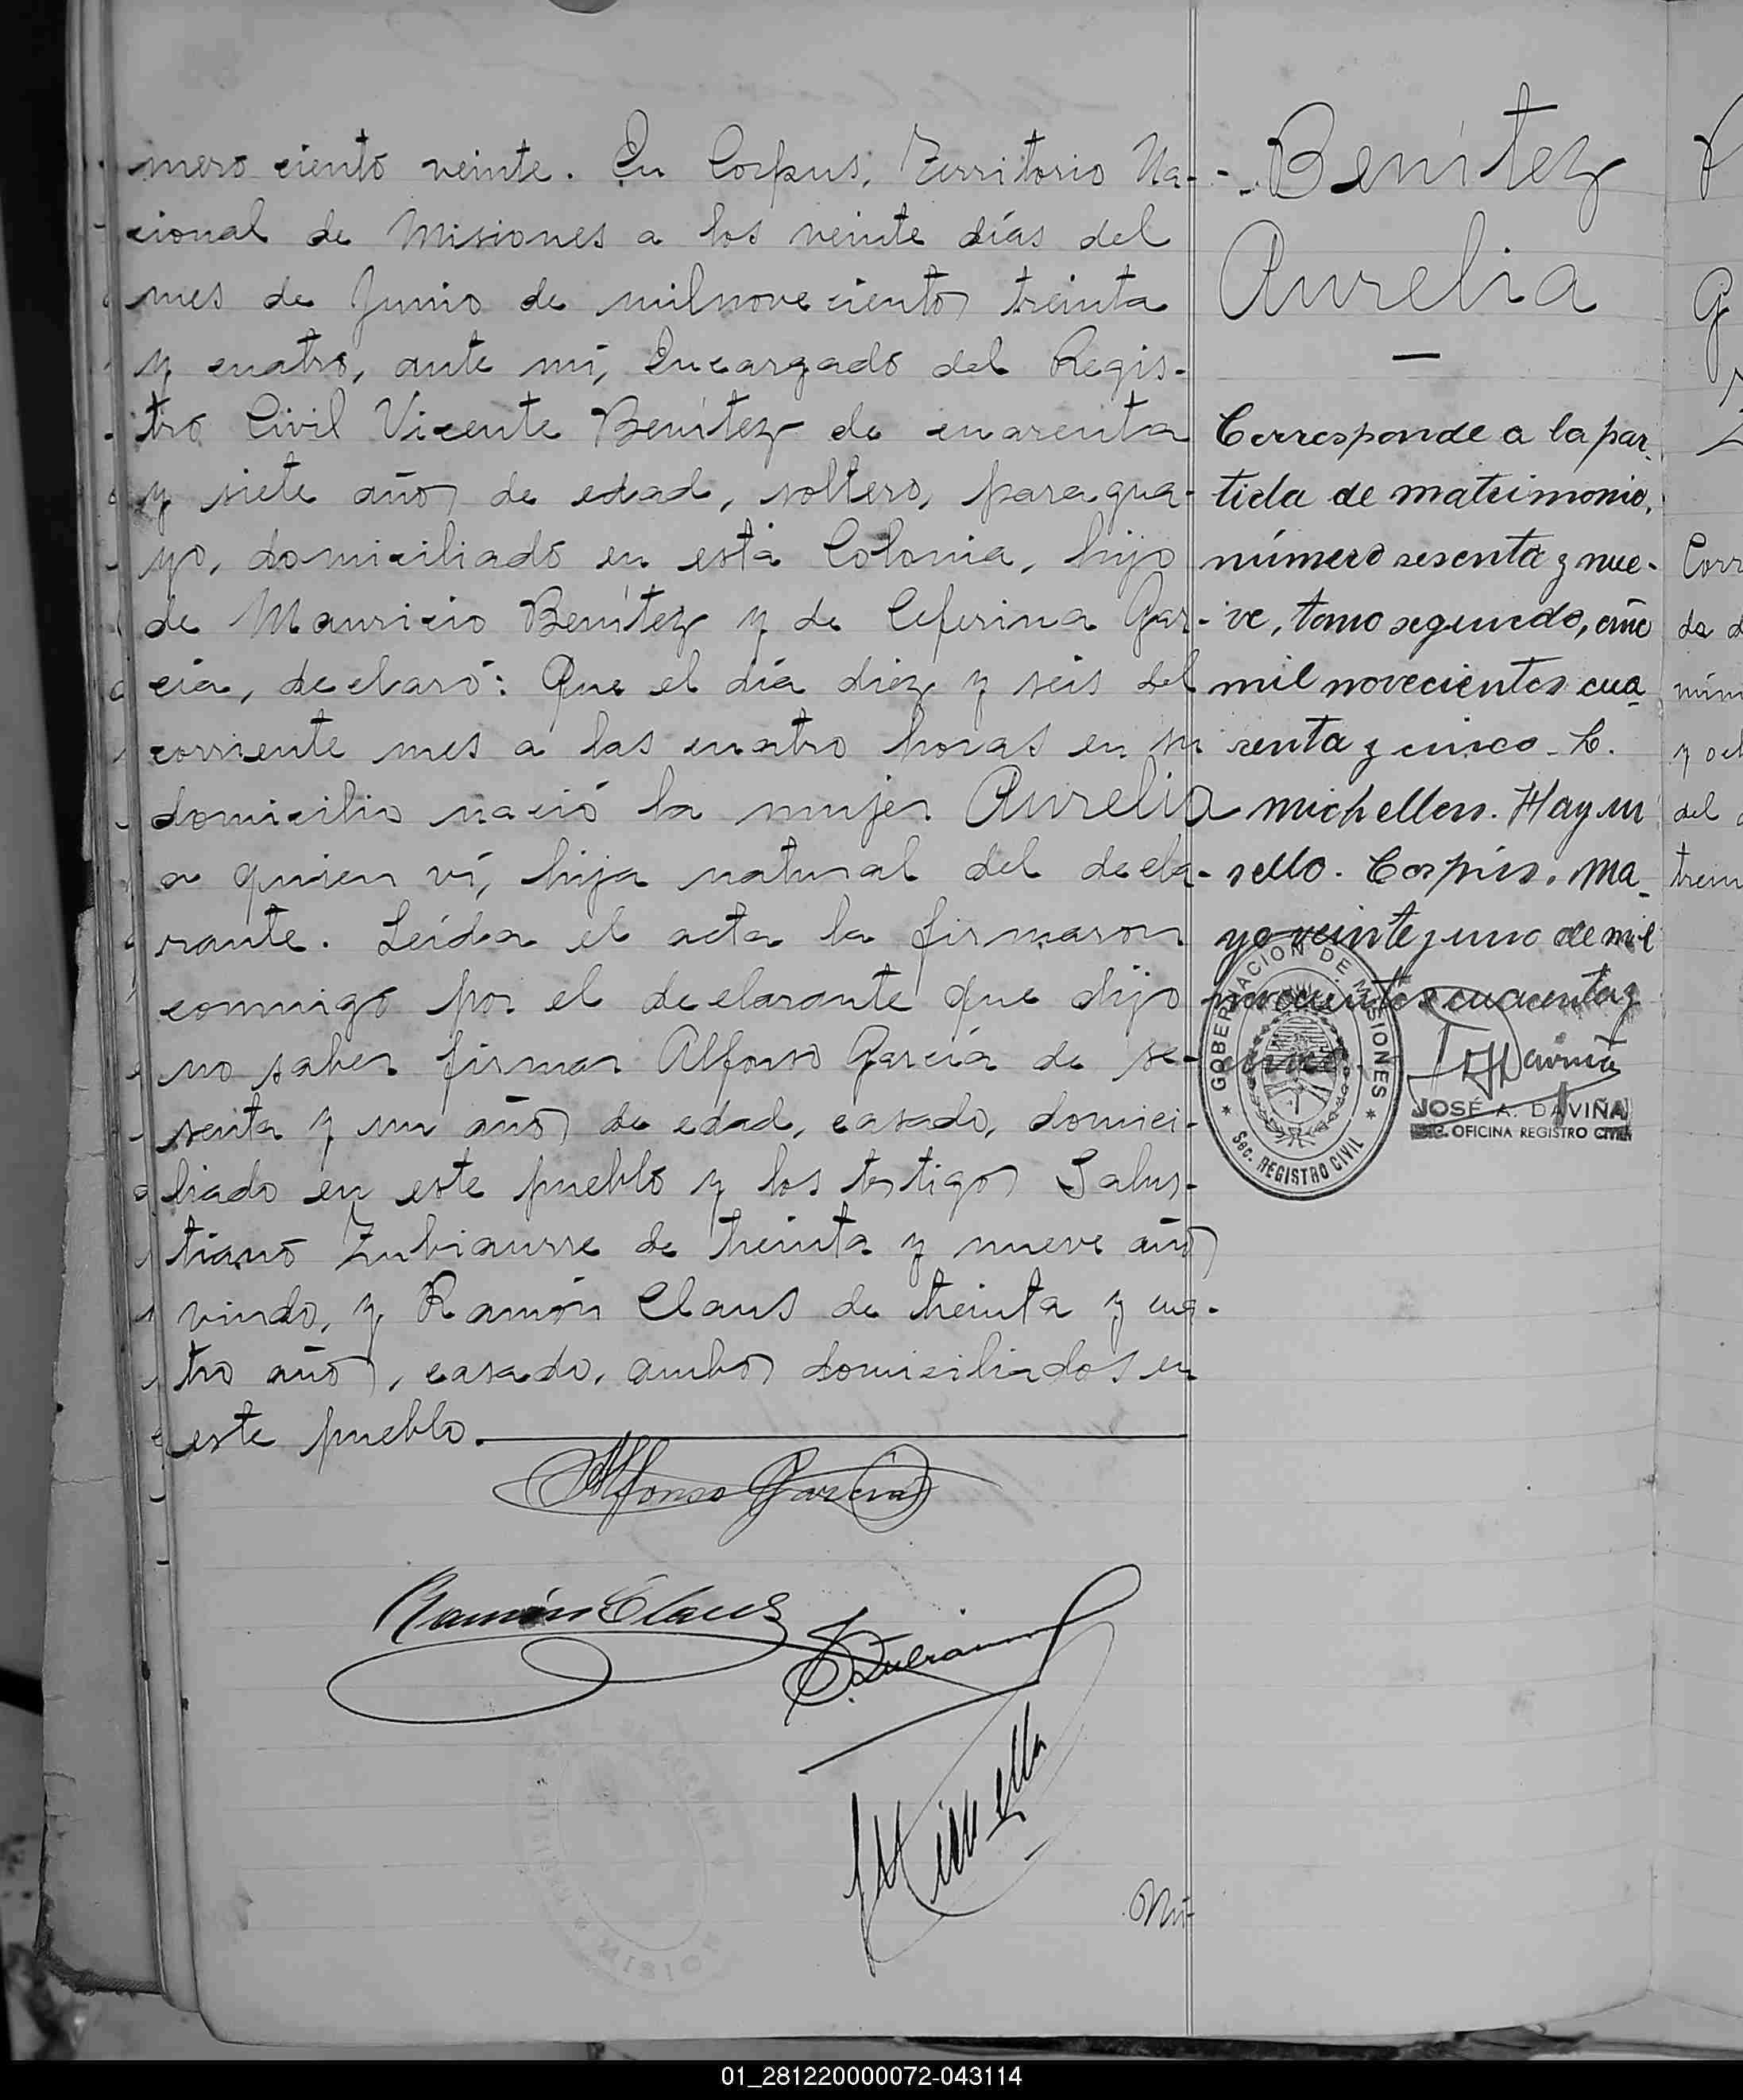 mero ciento veinte. En Corpus, Territorio Na-
cional de Misiones a los veinte días del
mes de Junio de milnovecientos treinta
y cuatro, ante mí, Encargado del Regis-
tro Civil Vicente Benítez de cuarenta
y siete años de edad, soltero, paragua-
yo, domiciliado en esta Colonia, hijo
de Mauricio Benítez y de Ceferina Gar-
cía, declaró: Que el día diez y seis del
corriente mes a las cuatro horas en su
domicilio nació la mujer Aurelia
a quien ví, hija natural del decla-
rante. Leída el acta la firmaron
conmigo por el declarante que dijo
no saber firmar Alfonso García de se-
senta y un años de edad, casado, domici-
liado en este pueblo y los testigos Salus-
tiano Zubiaurre de treinta y nueve años
viudo, y Ramón Claus de treinta y cua-
tro años, casado, ambos domiciliados en
este pueblo.
Alfonso García
Ramón Claus
Nú-
Benítez
Aurelia
Corresponde a la par-
tida de matrimonio,
número sesenta y nue-
ve, tomo segundo, año
mil novecientos cua-
renta y cinco.
Hay un
sello. Corpus, Ma-
yo veinte y uno de mil
novecientos cuarenta y
cinco.
GOBERNACION DE MISIONES
Sec. REGISTRO CIVIL
JOSÉ A. DAVIÑA
OFICINA REGISTRO CIVIL
01_281220000072-043114